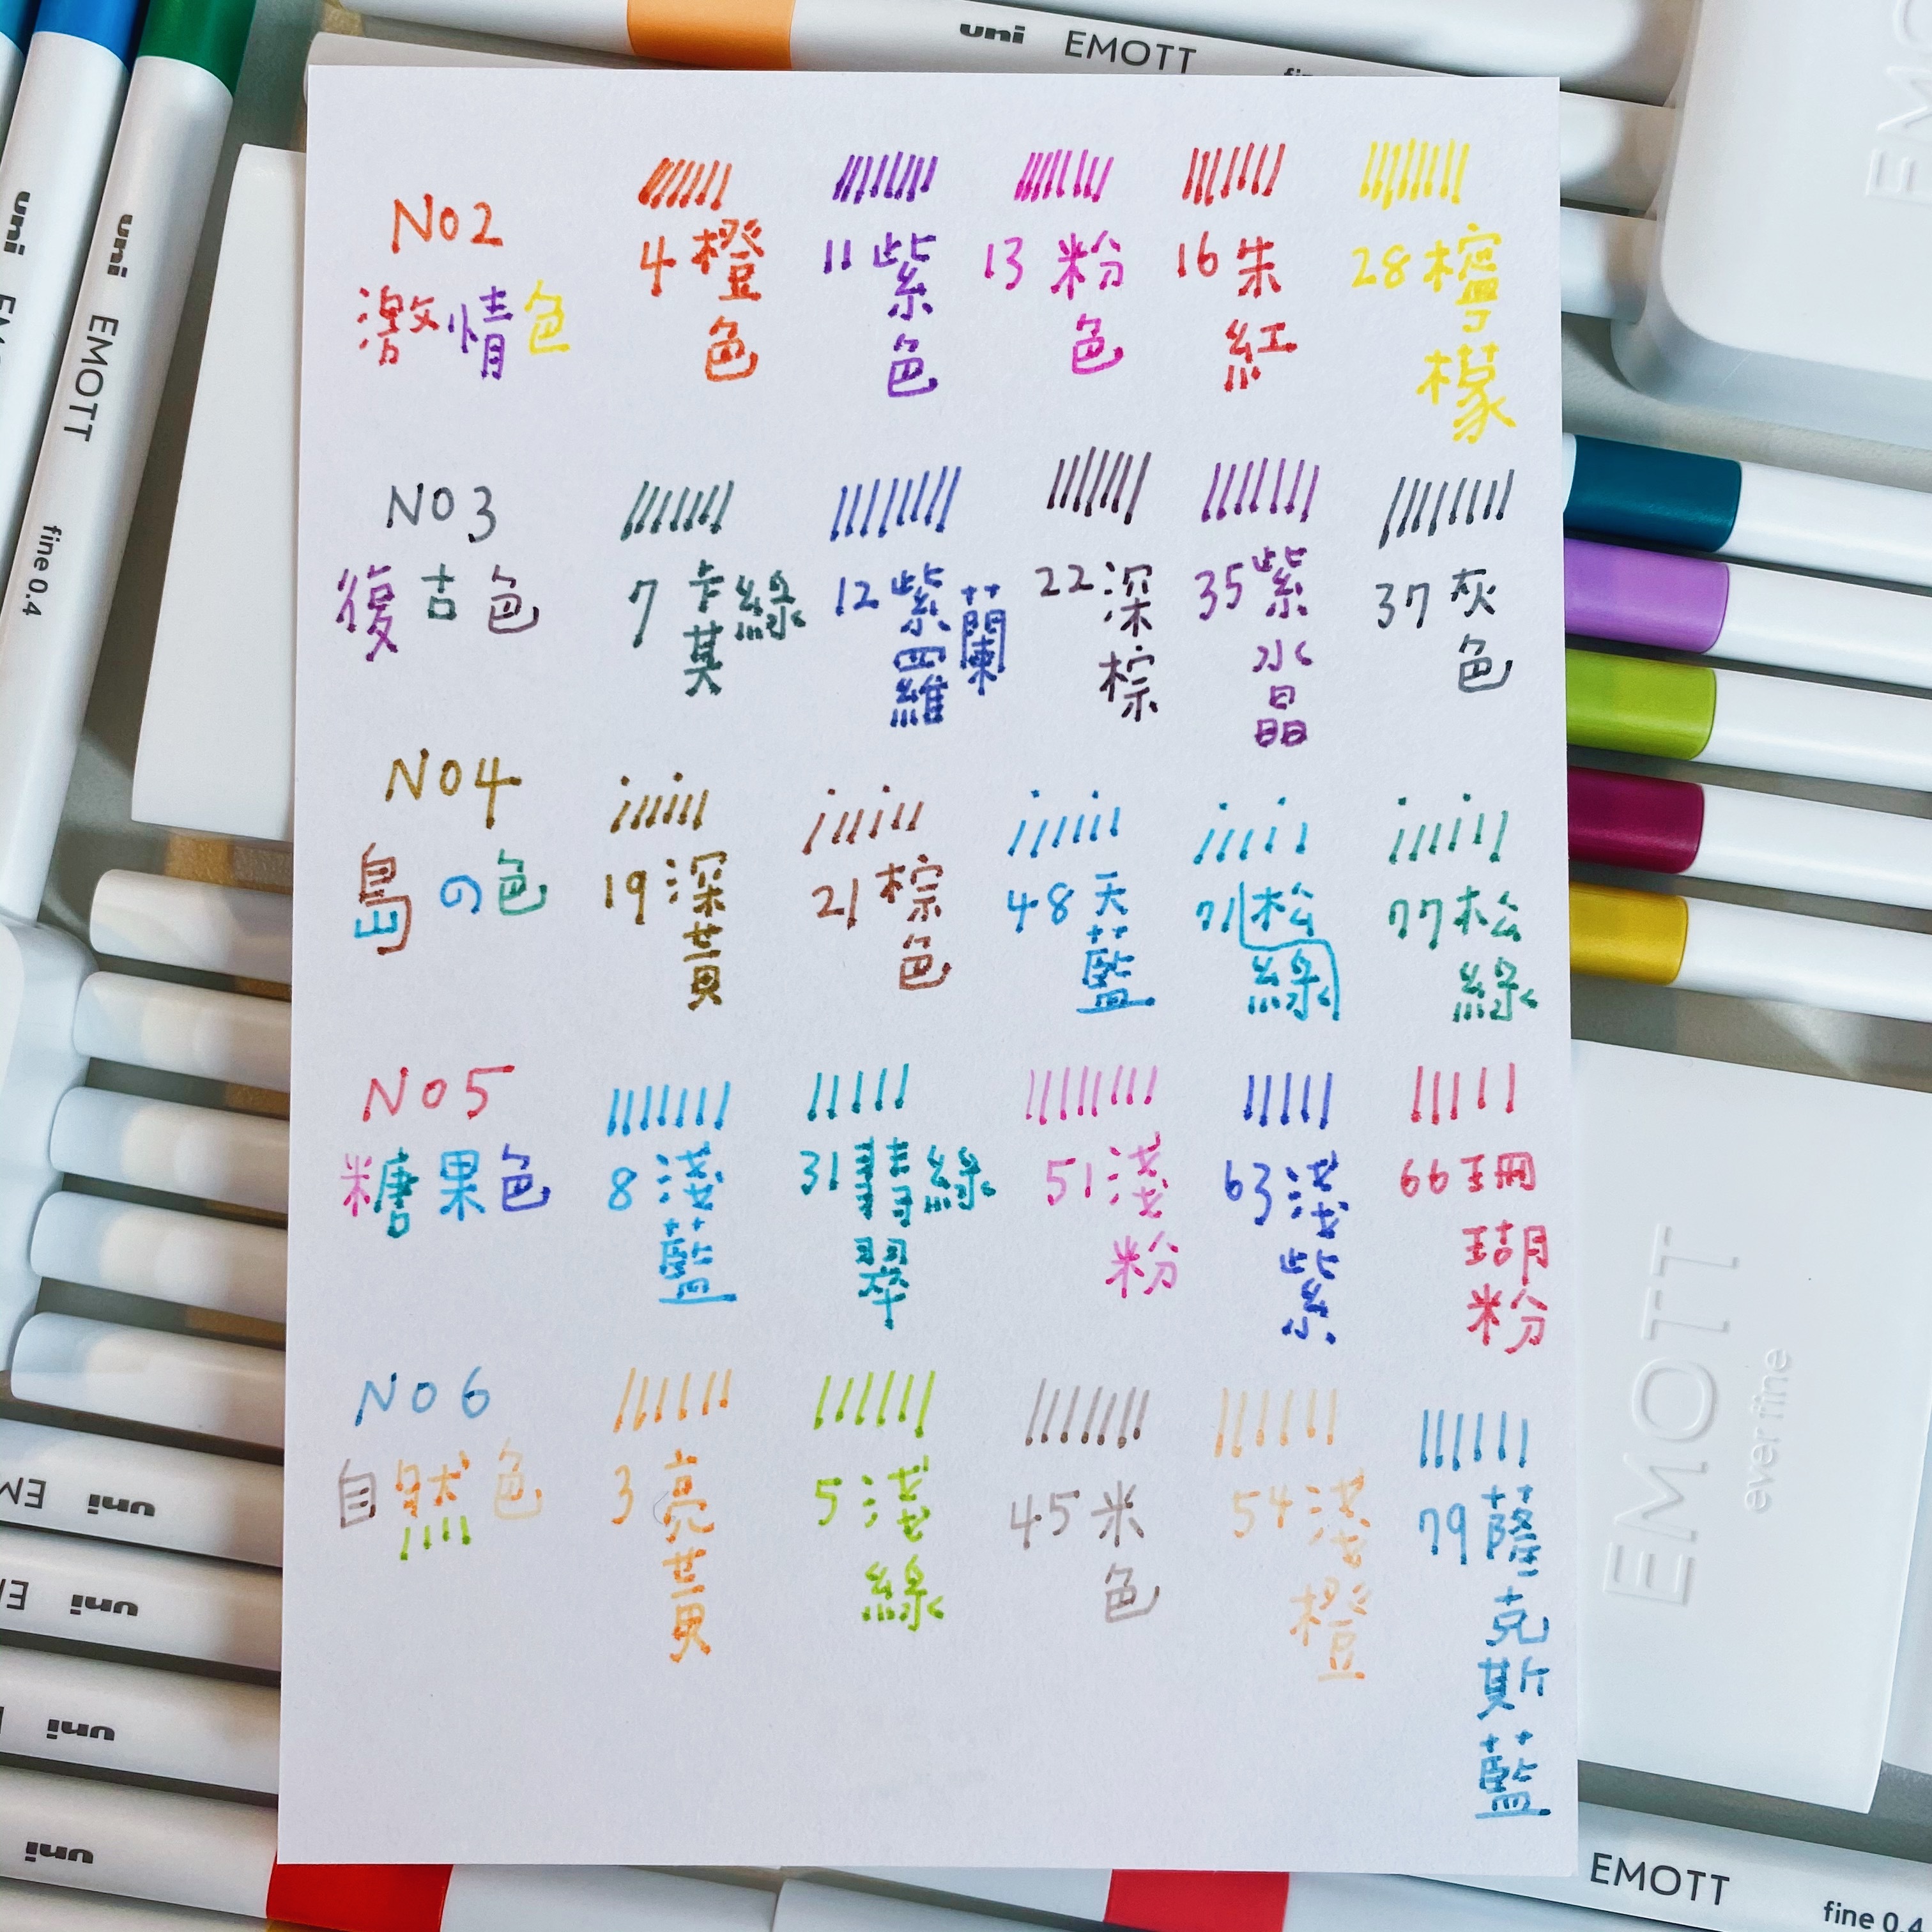 uni EMOTT
uni EMOTT fine 0.4
uni
EMOTT
No2
激情色
4 橙色
11 紫色
13 粉色
16 朱紅
28 檸檬
NO3
復古色
7 卡其綠
12 紫羅蘭
22 深棕
35 紫水晶
37 灰色
NO4
島の色
19 深黃
21 棕色
48 天藍
71 松綠
77 松綠
NO5
糖果色
8 淺藍
31 翡翠綠
51 淺粉
63 淺紫
66 珊瑚粉
NO6
自然色
3 亮黃
5 淺綠
45 米色
54 淺橙
79 薩克斯藍
EMOTT
ever fine
uni
uni
uni
uni
EMOTT fine 0.4